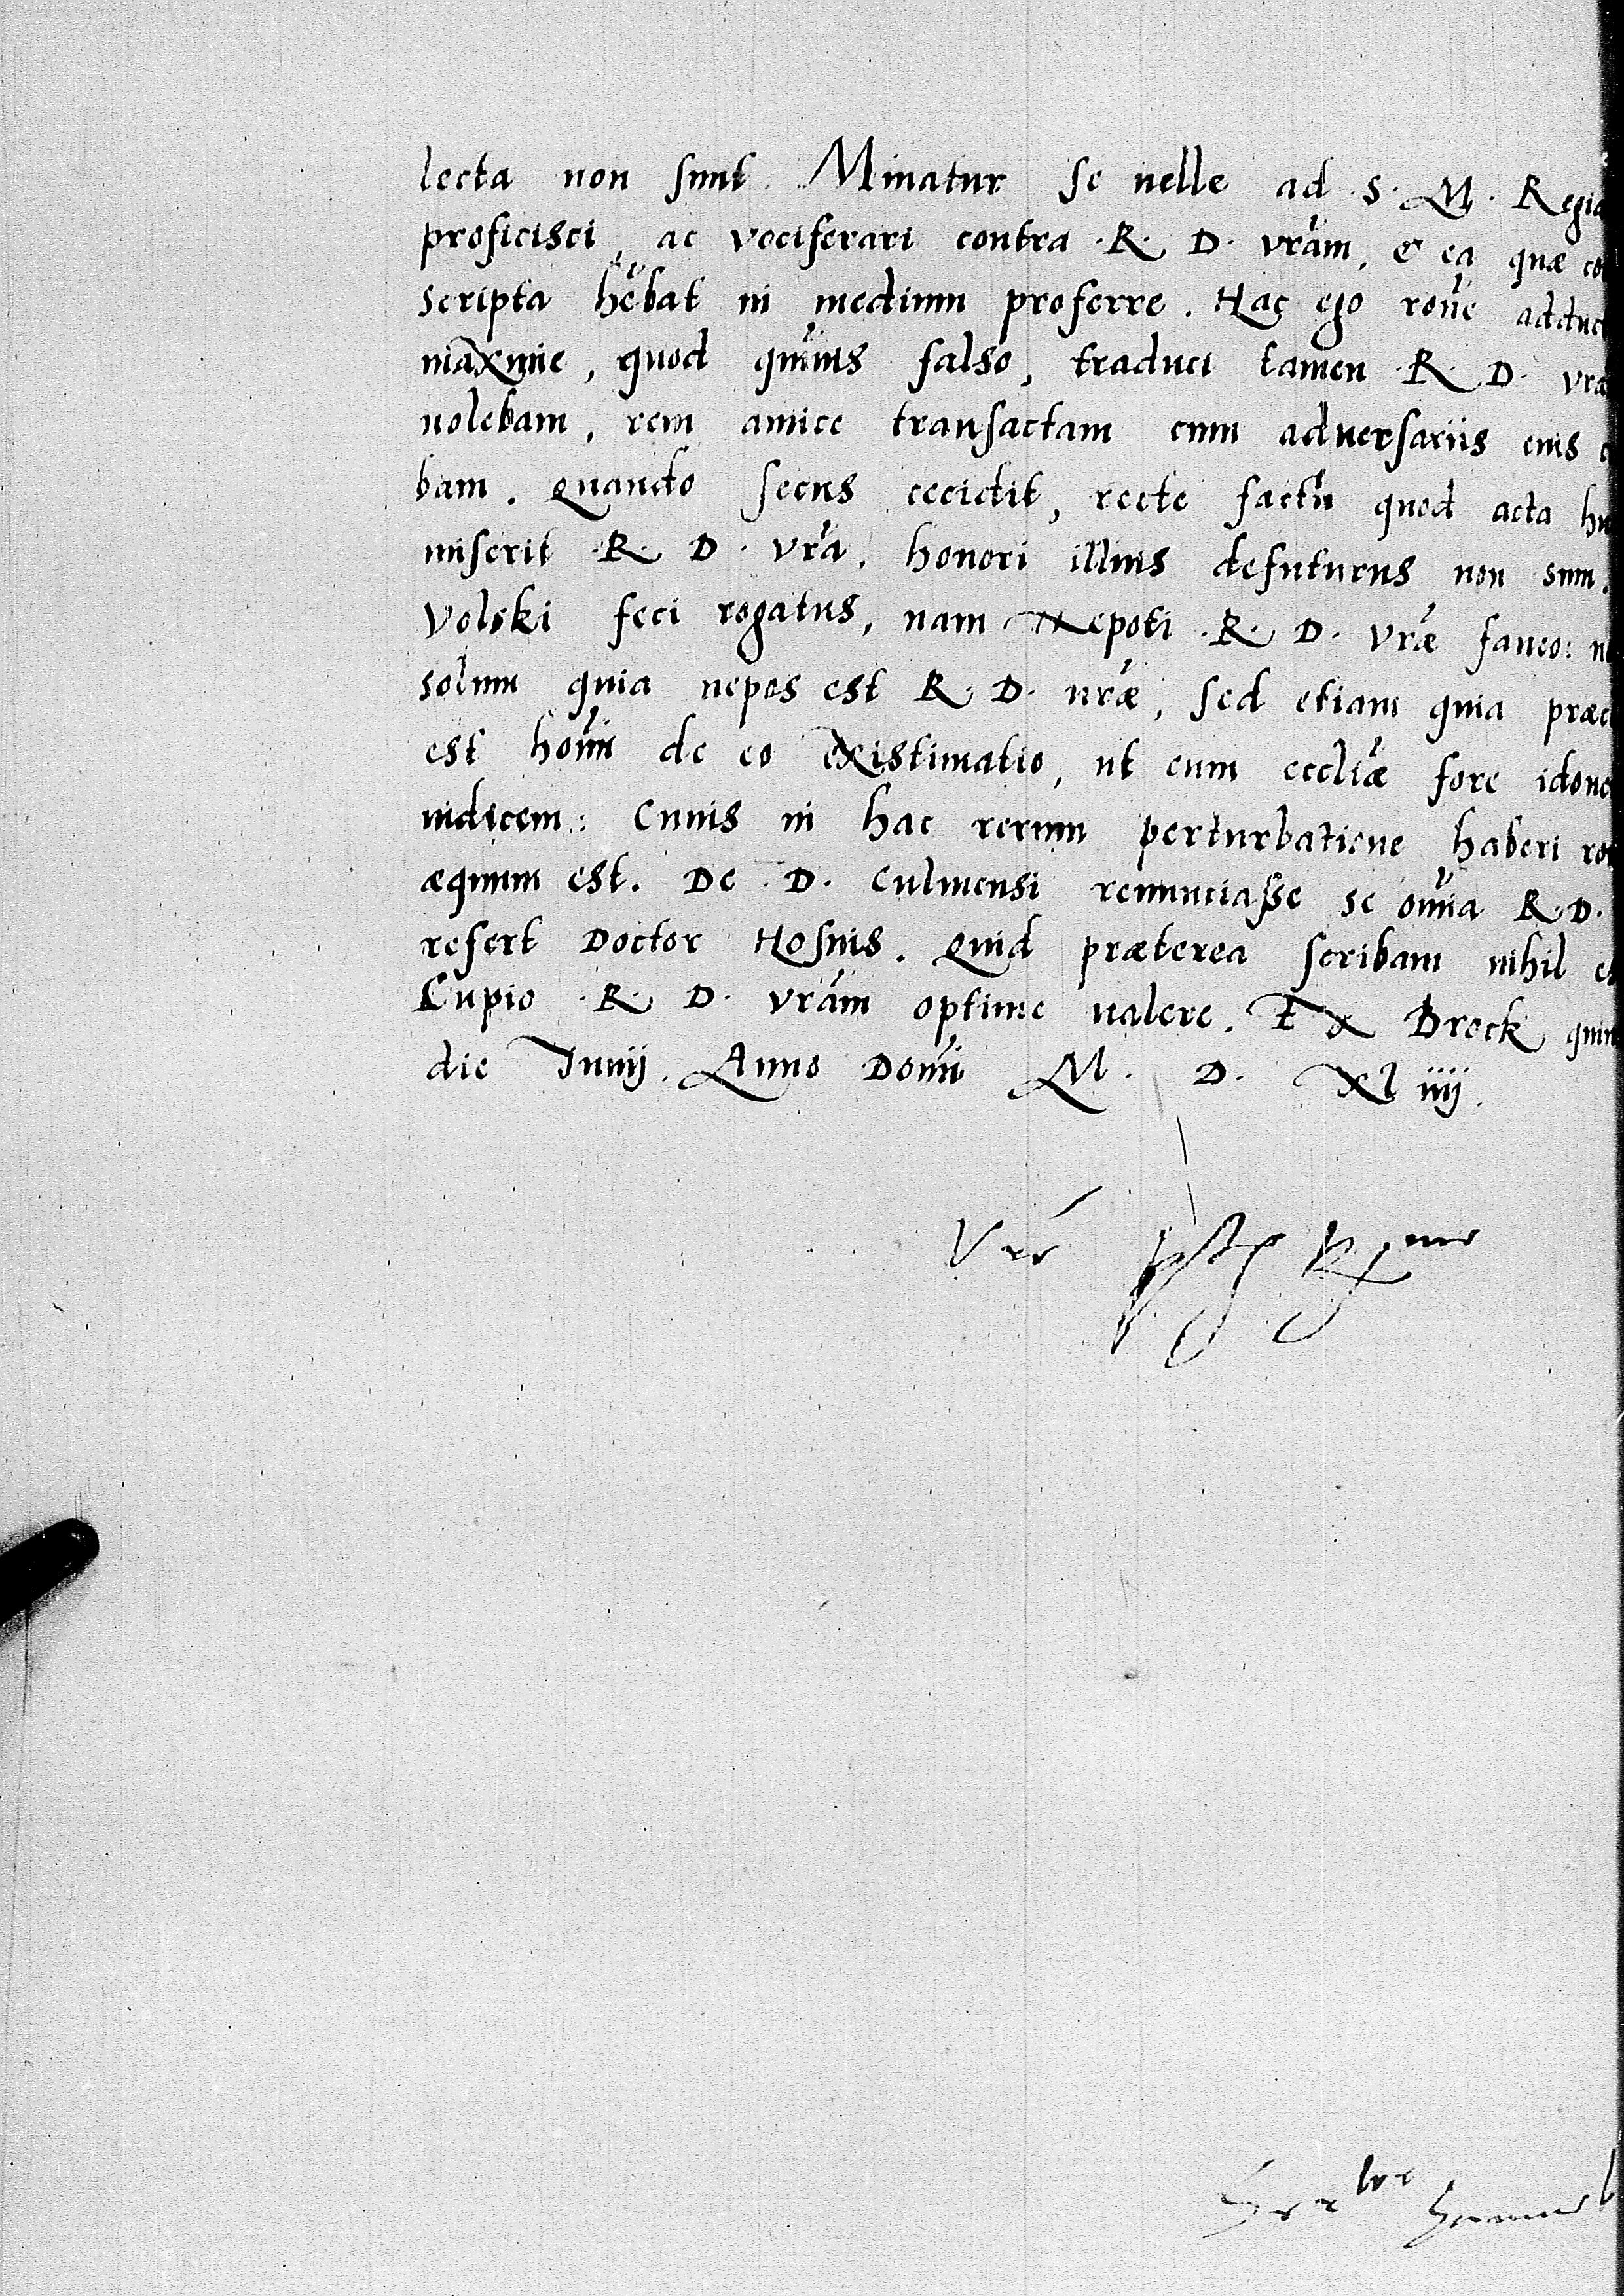 lecta non sunt. Minatur se uelle ad S. M. Regia
proficisci, ac vociferari contra R. D. vram, & ea quæ co
scripta hēbat in medium proferre. Hac ego rone adduc
maxime, quod quis falso, traduci tamen R. D. vra
nolebam, rem amice transactam cum aduersariis eius
bam. Quando secus cecidit, recte factū quod acta hu
miserit R. D. vra. honori illius defuturus non sum.
Volski feci rogatus, nam Nepoti R. D. vræ faueo: n
solum quia nepos est R. D. uræ, sed etiam quia præc
est homi de eo existimatio, ut eum eccliæ fore idone
iudicem: Cuius in hac rerum perturbatione haberi ro
æquum est. De D. Culmensi renunciasse se omia R. D.
refert Doctor Hosius. Quid præterea scribam nihil e
Cupio R. D. vram optime ualere. Ex Brock quin
die Junij. Anno Domi M. D. Xl iiij.